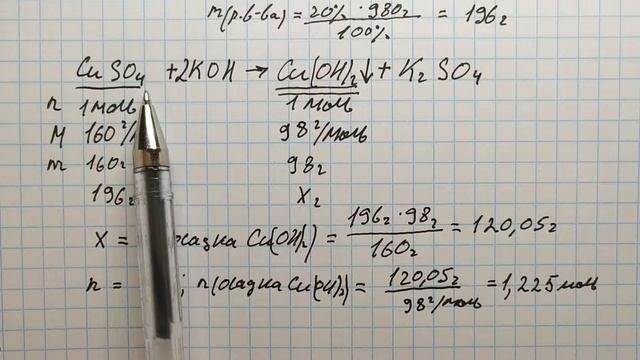 m(р.в-ва) = 20% · 980г / 100% = 196г
CuSO4 + 2KOH → Cu(OH)2↓ + K2SO4
n 1моль 1моль
M 160г/ 98г/моль
m 160г 98г
196г Xг
X = осадка Cu(OH)2) = 196г · 98г / 160г = 120,05г
n = ; n(осадка Cu(OH)2) = 120,05г / 98г/моль = 1,225моль